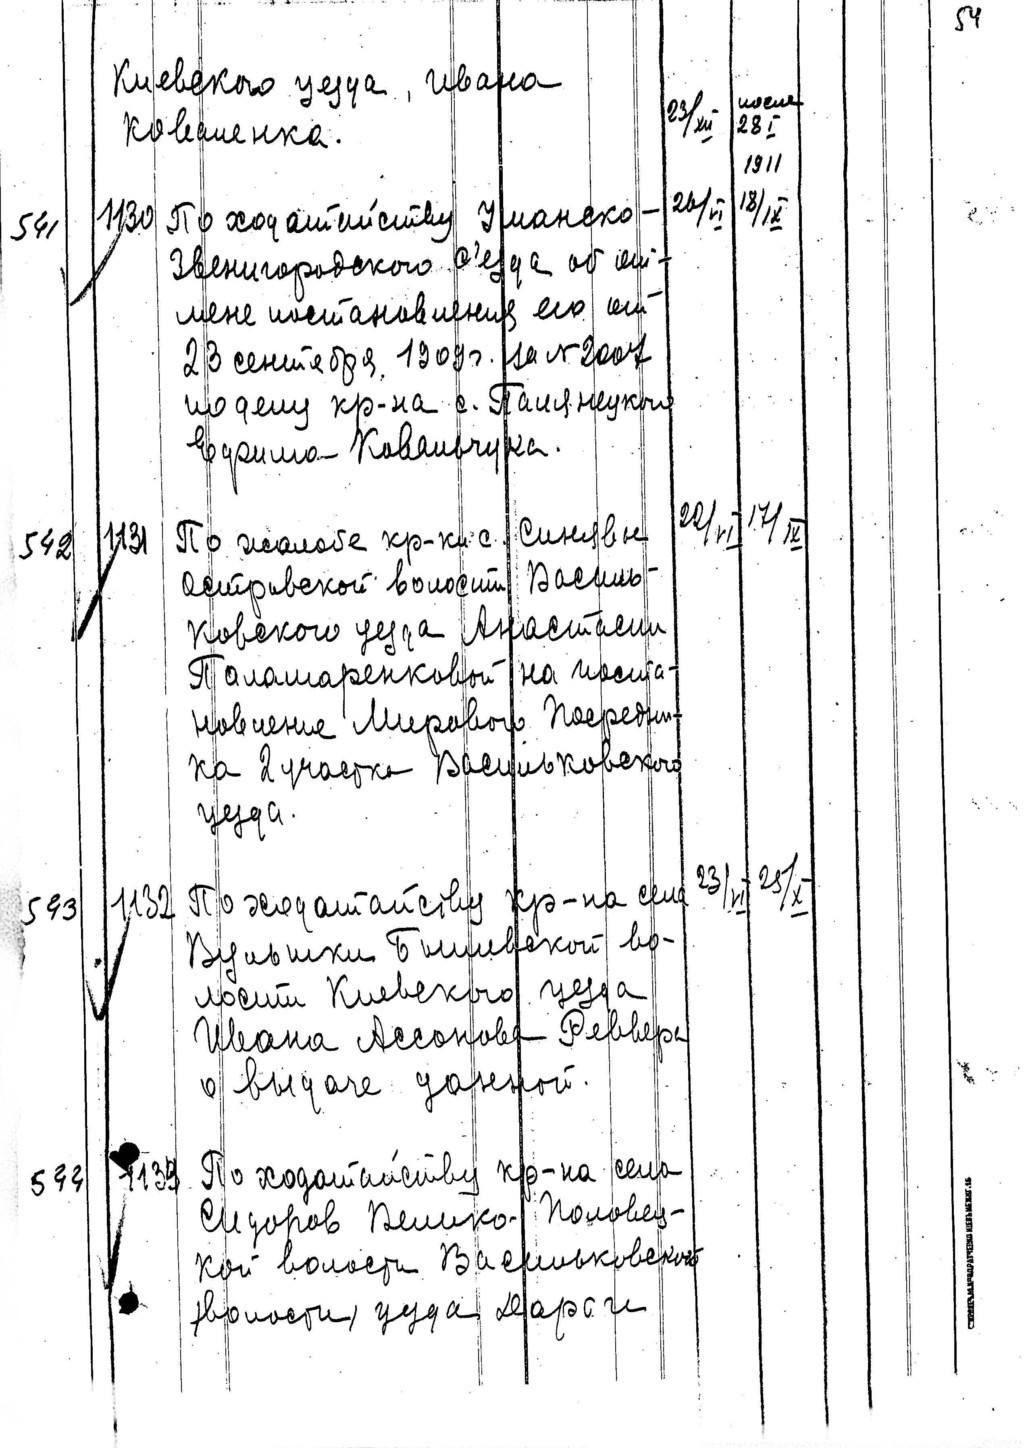 54
Киевского уезда, Ивана 23/XII после
Коваленка. 28 I
1911
541 1130 По ходатайству Уманско- 26/VI 18/IX
Звенигородского с'езда об от-
мене постановления его от
23 сентября 1909 г. за № 2007
по делу кр-на с.
Ефима Ковальчука.
542 1131 По жалобе кр-ки с. Синявы 22/VI 17/IX
Островской волости Василь-
ковского уезда Анастасии
Паламаренковой на поста-
новление Мирового Посредни-
ка 2 участка Васильковского
уезда.
543 1132 По ходатайству кр-на села 23/VI 25/X
Бышевской во-
лости Киевского уезда
Ивана Ассонова
о выдаче данной.
544 1133 По ходатайству кр-на села
Сидоров Велико-Половец-
кой волости Васильковской
/волости/ уезда